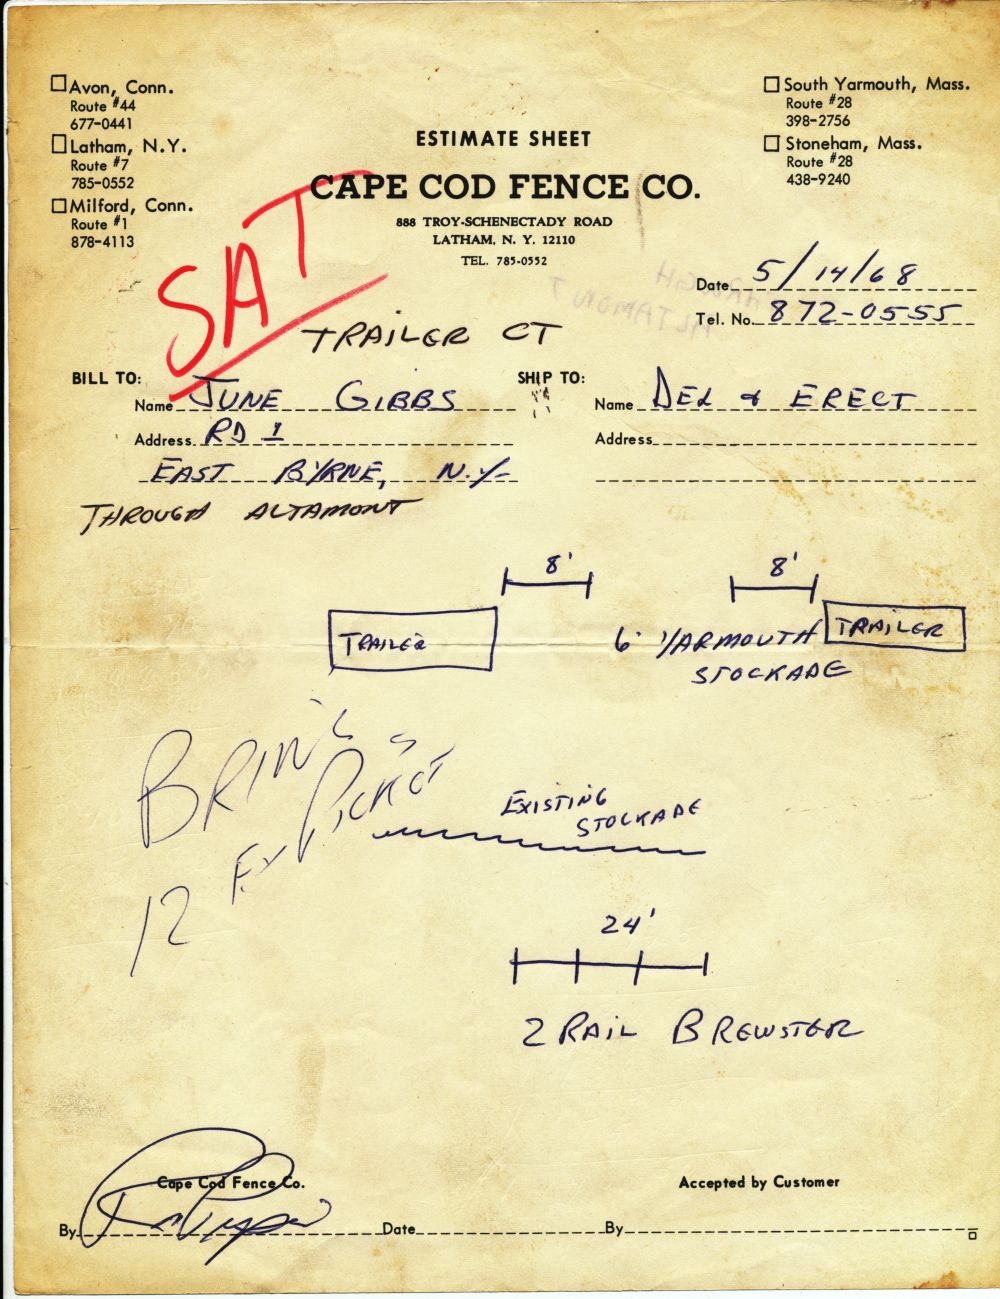 Avon, Conn.
Route #44
677-0441
Latham, N.Y.
Route #7
785-0552
Milford, Conn.
Route #1
878-4113
South Yarmouth, Mass.
Route #28
398-2756
Stoneham, Mass.
Route #28
438-9240
ESTIMATE SHEET
CAPE COD FENCE CO.
888 TROY-SCHENECTADY ROAD
LATHAM, N. Y. 12110
TEL. 785-0552
SAT
Date 5/14/68
Tel. No. 872-0555
TRAILER CT
BILL TO:
Name JUNE GIBBS
Address RD 1
EAST BYRNE, N.Y.
THROUGH ALTAMONT
SHIP TO:
Name DEL & ERECT
Address
8'
8'
TRAILER
6' YARMOUTH
STOCKADE
TRAILER
BRING
12 EX PICKETS
EXISTING
STOCKADE
24'
2 RAIL BREWSTER
Cape Cod Fence Co.
Accepted by Customer
By Date By